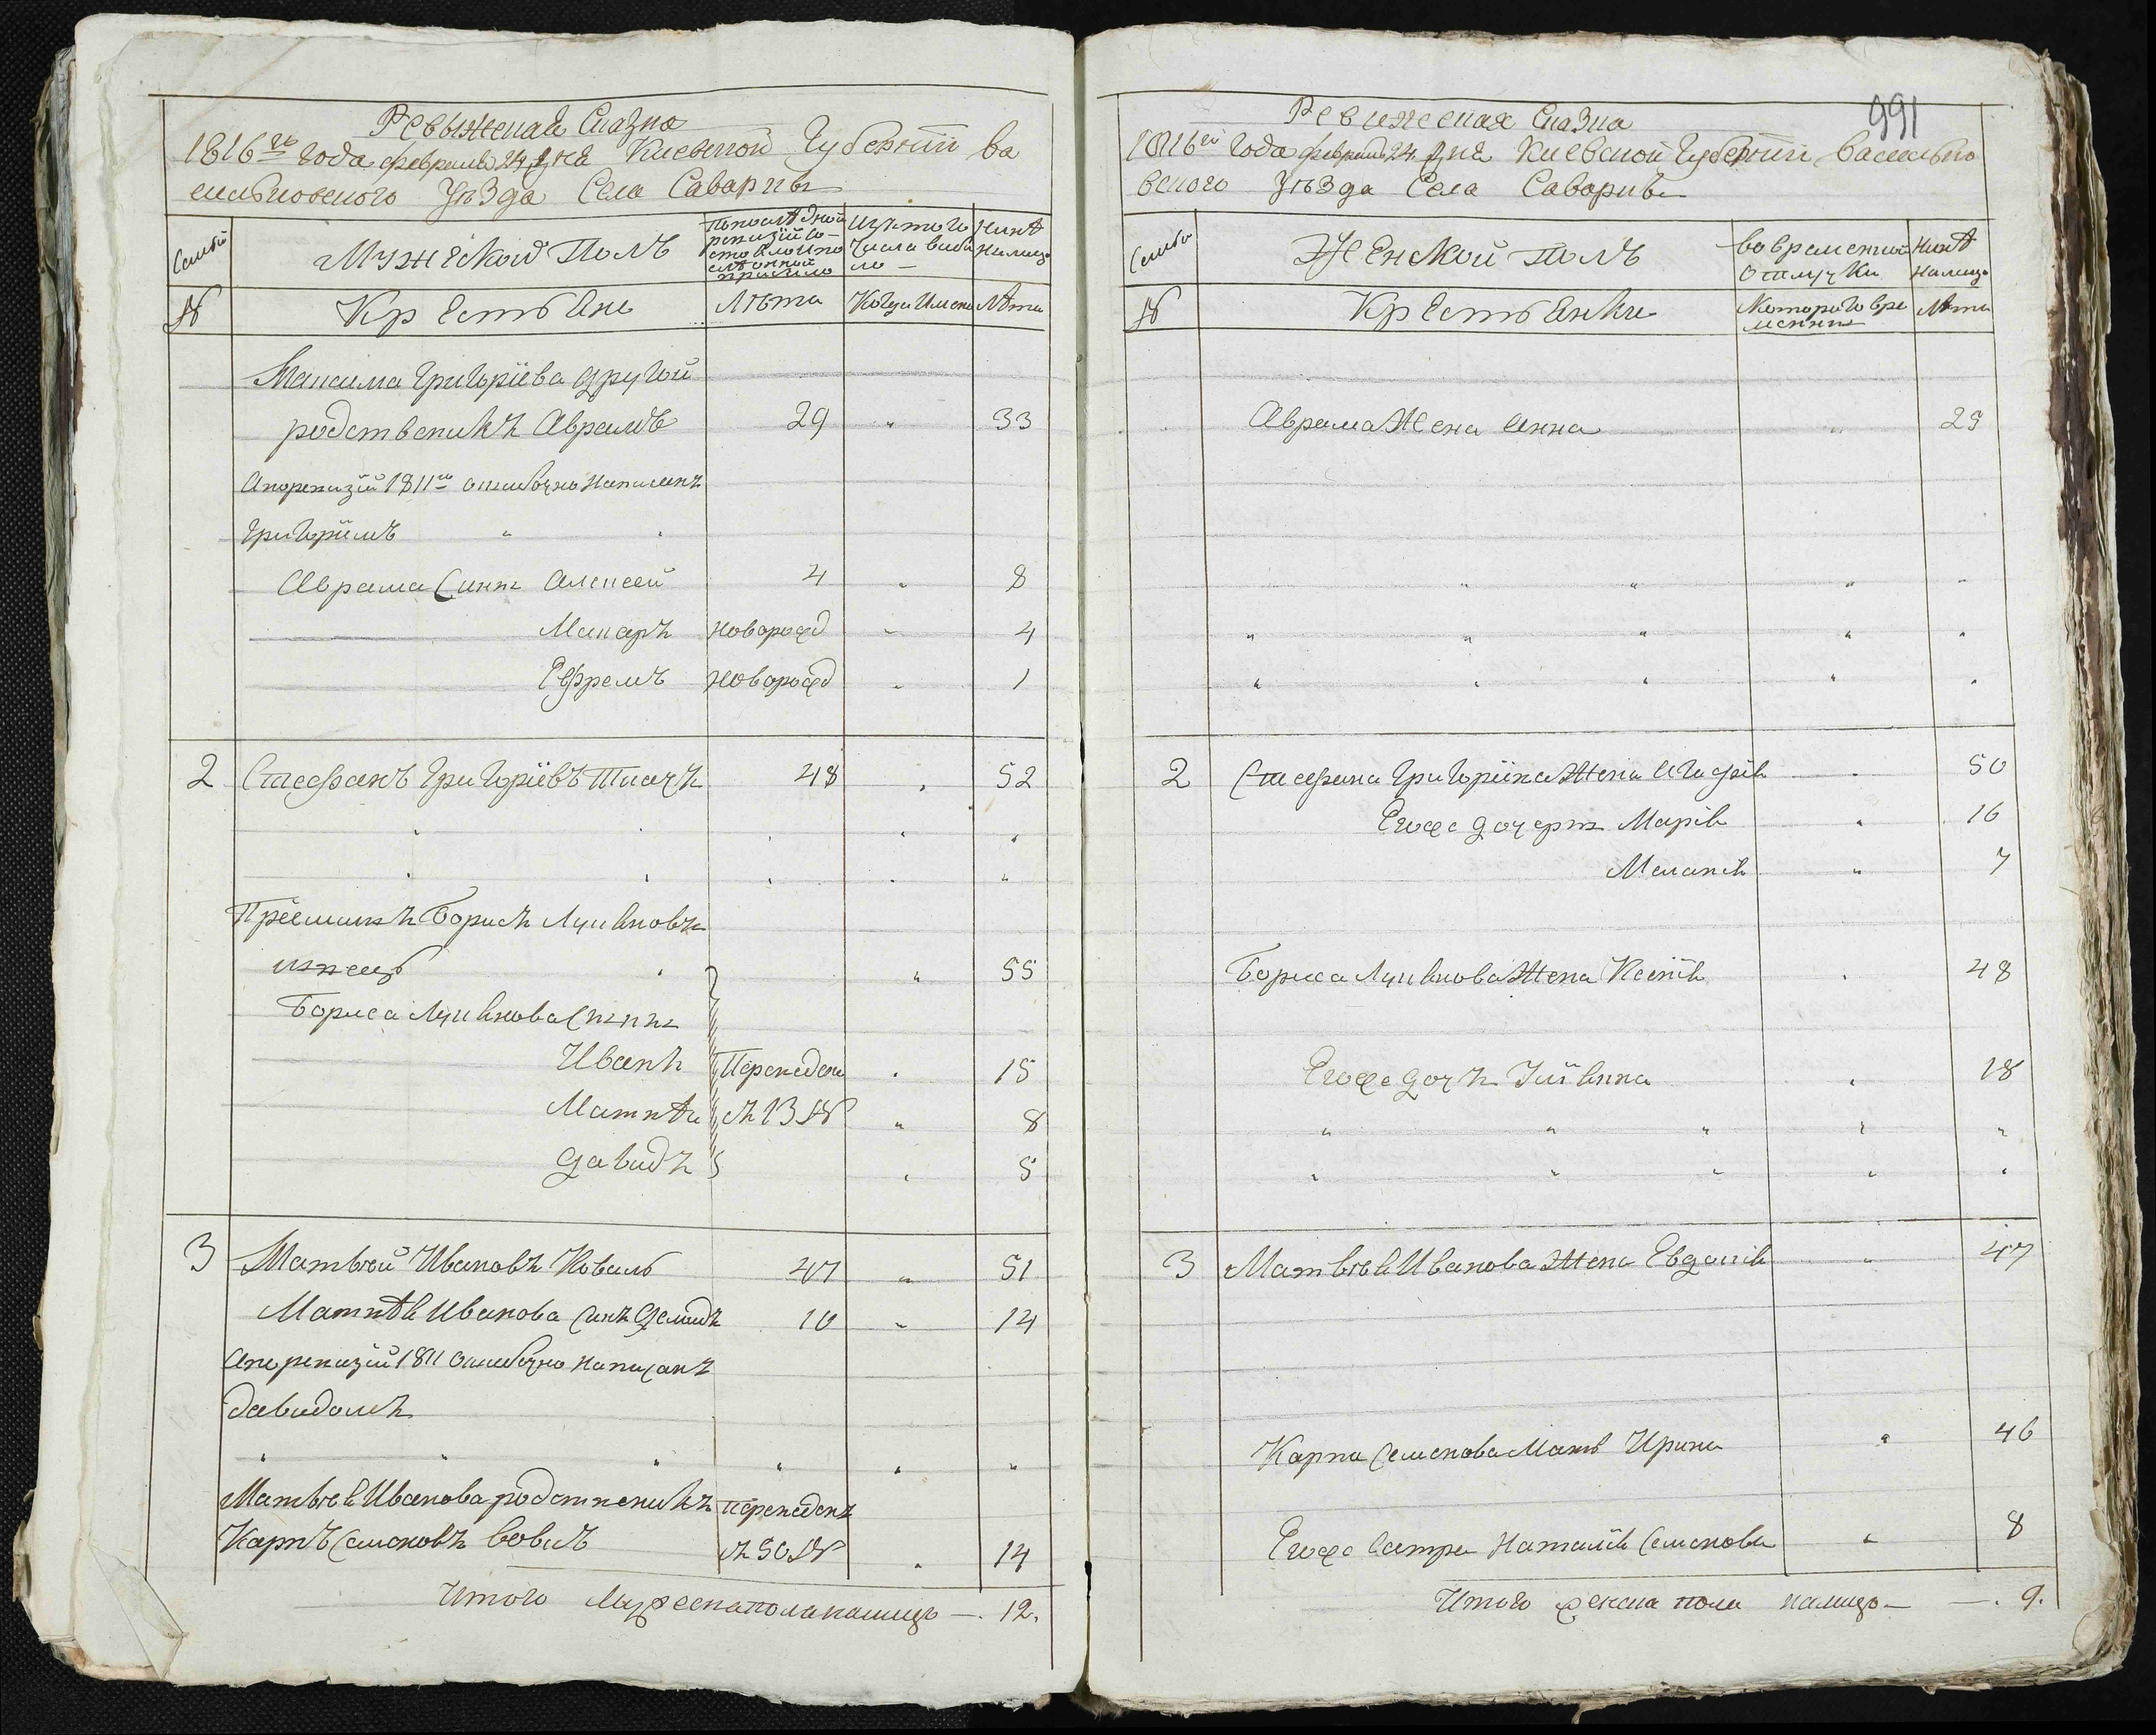 Ревыжская Сказка
1816го года февраля 24 дня Киевской Губернїи Ва
сильковского Уѣзда Села Саварки
Семьи
Мужеской Полъ
По последной ревизїи со-
стояло и по
слѣ оной
прибыло
Изъ того
Числа выбы
ло —
Нинѣ
налицо
№
Крестьяне
Лѣта
Когда Имено
Лѣта
Максима Григорїева другой
родственикъ Аврамъ 29 " 33
А по ревизїи 1811го ошибочно написанъ
Григорїемъ " "
Аврама Сины Алексей 4 " 8
Макаръ новорожд " 4
Ефремъ новорожд " 1
2 Стефанъ Григорїевъ Ткачъ 48 " 52
" " " " "
" " " " "
Прїемышъ Борисъ Луциковъ
" " 55
Бориса Луцикова Сыны
Иванъ Переведени " 15
Матвѣй съ 13 № " 8
Давидъ " 5
3 Матвѣй Ивановъ Коваль 47 " 51
Матвѣя Иванова Синъ Демидъ 10 " 14
А по ревизїи 1811 ошибочно написанъ
Давидомъ
" " " " " "
Матвѣя Иванова родственикъ переведенъ
Карпъ Семеновъ Вовкъ съ 50 № " 14
Итого Мужеска пола налицо — 12.
991
Ревижская Сказка
1816го Года февраля 24 дня Киевской Губернїи Василько
вского Уѣзда Села Саварки
Семьи
Женской Полъ
Во временной
отлучки
Нинѣ
налицо
№
Крестьянки
Которого вре
менны
Лѣта
Аврама Жена Анна " 29
" " " "
" " " " "
" " " " "
2 Стефана Григорїива Жена Агафїя " 50
Егоже дочеры Марїя " 16
Меланїя " 7
Бориса Луцикова Жена Ксенїя " 48
Егоже дочъ " 18
" " " " "
" " " " "
3 Матвѣя Иванова Жена Евдокїя " 47
Карпа Семенова Мать Ирина " 46
Егоже Сестра Наталїя Семенова " 8
Итого женска пола налицо — 9.